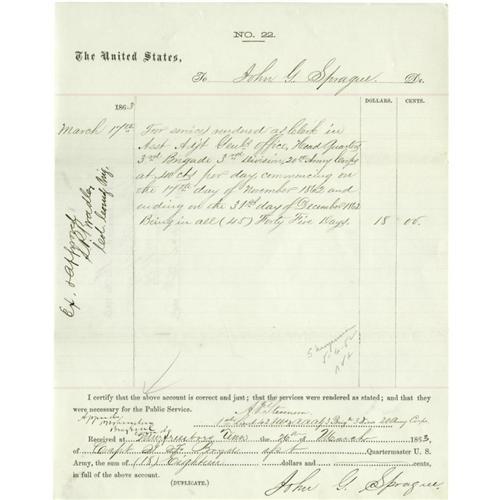 NO. 22.
The United States,
To John G. Sprague. Dr.
DOLLARS. CENTS.
1863
March 17th For services rendered as Clerk in
Asst Adjt Genls Office, Head Quarters
3rd Brigade 3rd Division, 20th Army Corps
at 40 cts per day, commencing on
the 17th day of November 1862 and
ending on the 31st day of December 1862
Being in all (45) Forty Five Days. 18 00
I certify that the above account is correct and just; that the services were rendered as stated; and that they
were necessary for the Public Service.
Received at Murfreesboro Tenn the 26th of March 1863,
of Capt Quartermaster U. S.
Army, the sum of (18) Eighteen dollars and cents,
in full of the above account.
(DUPLICATE.)
John G. Sprague